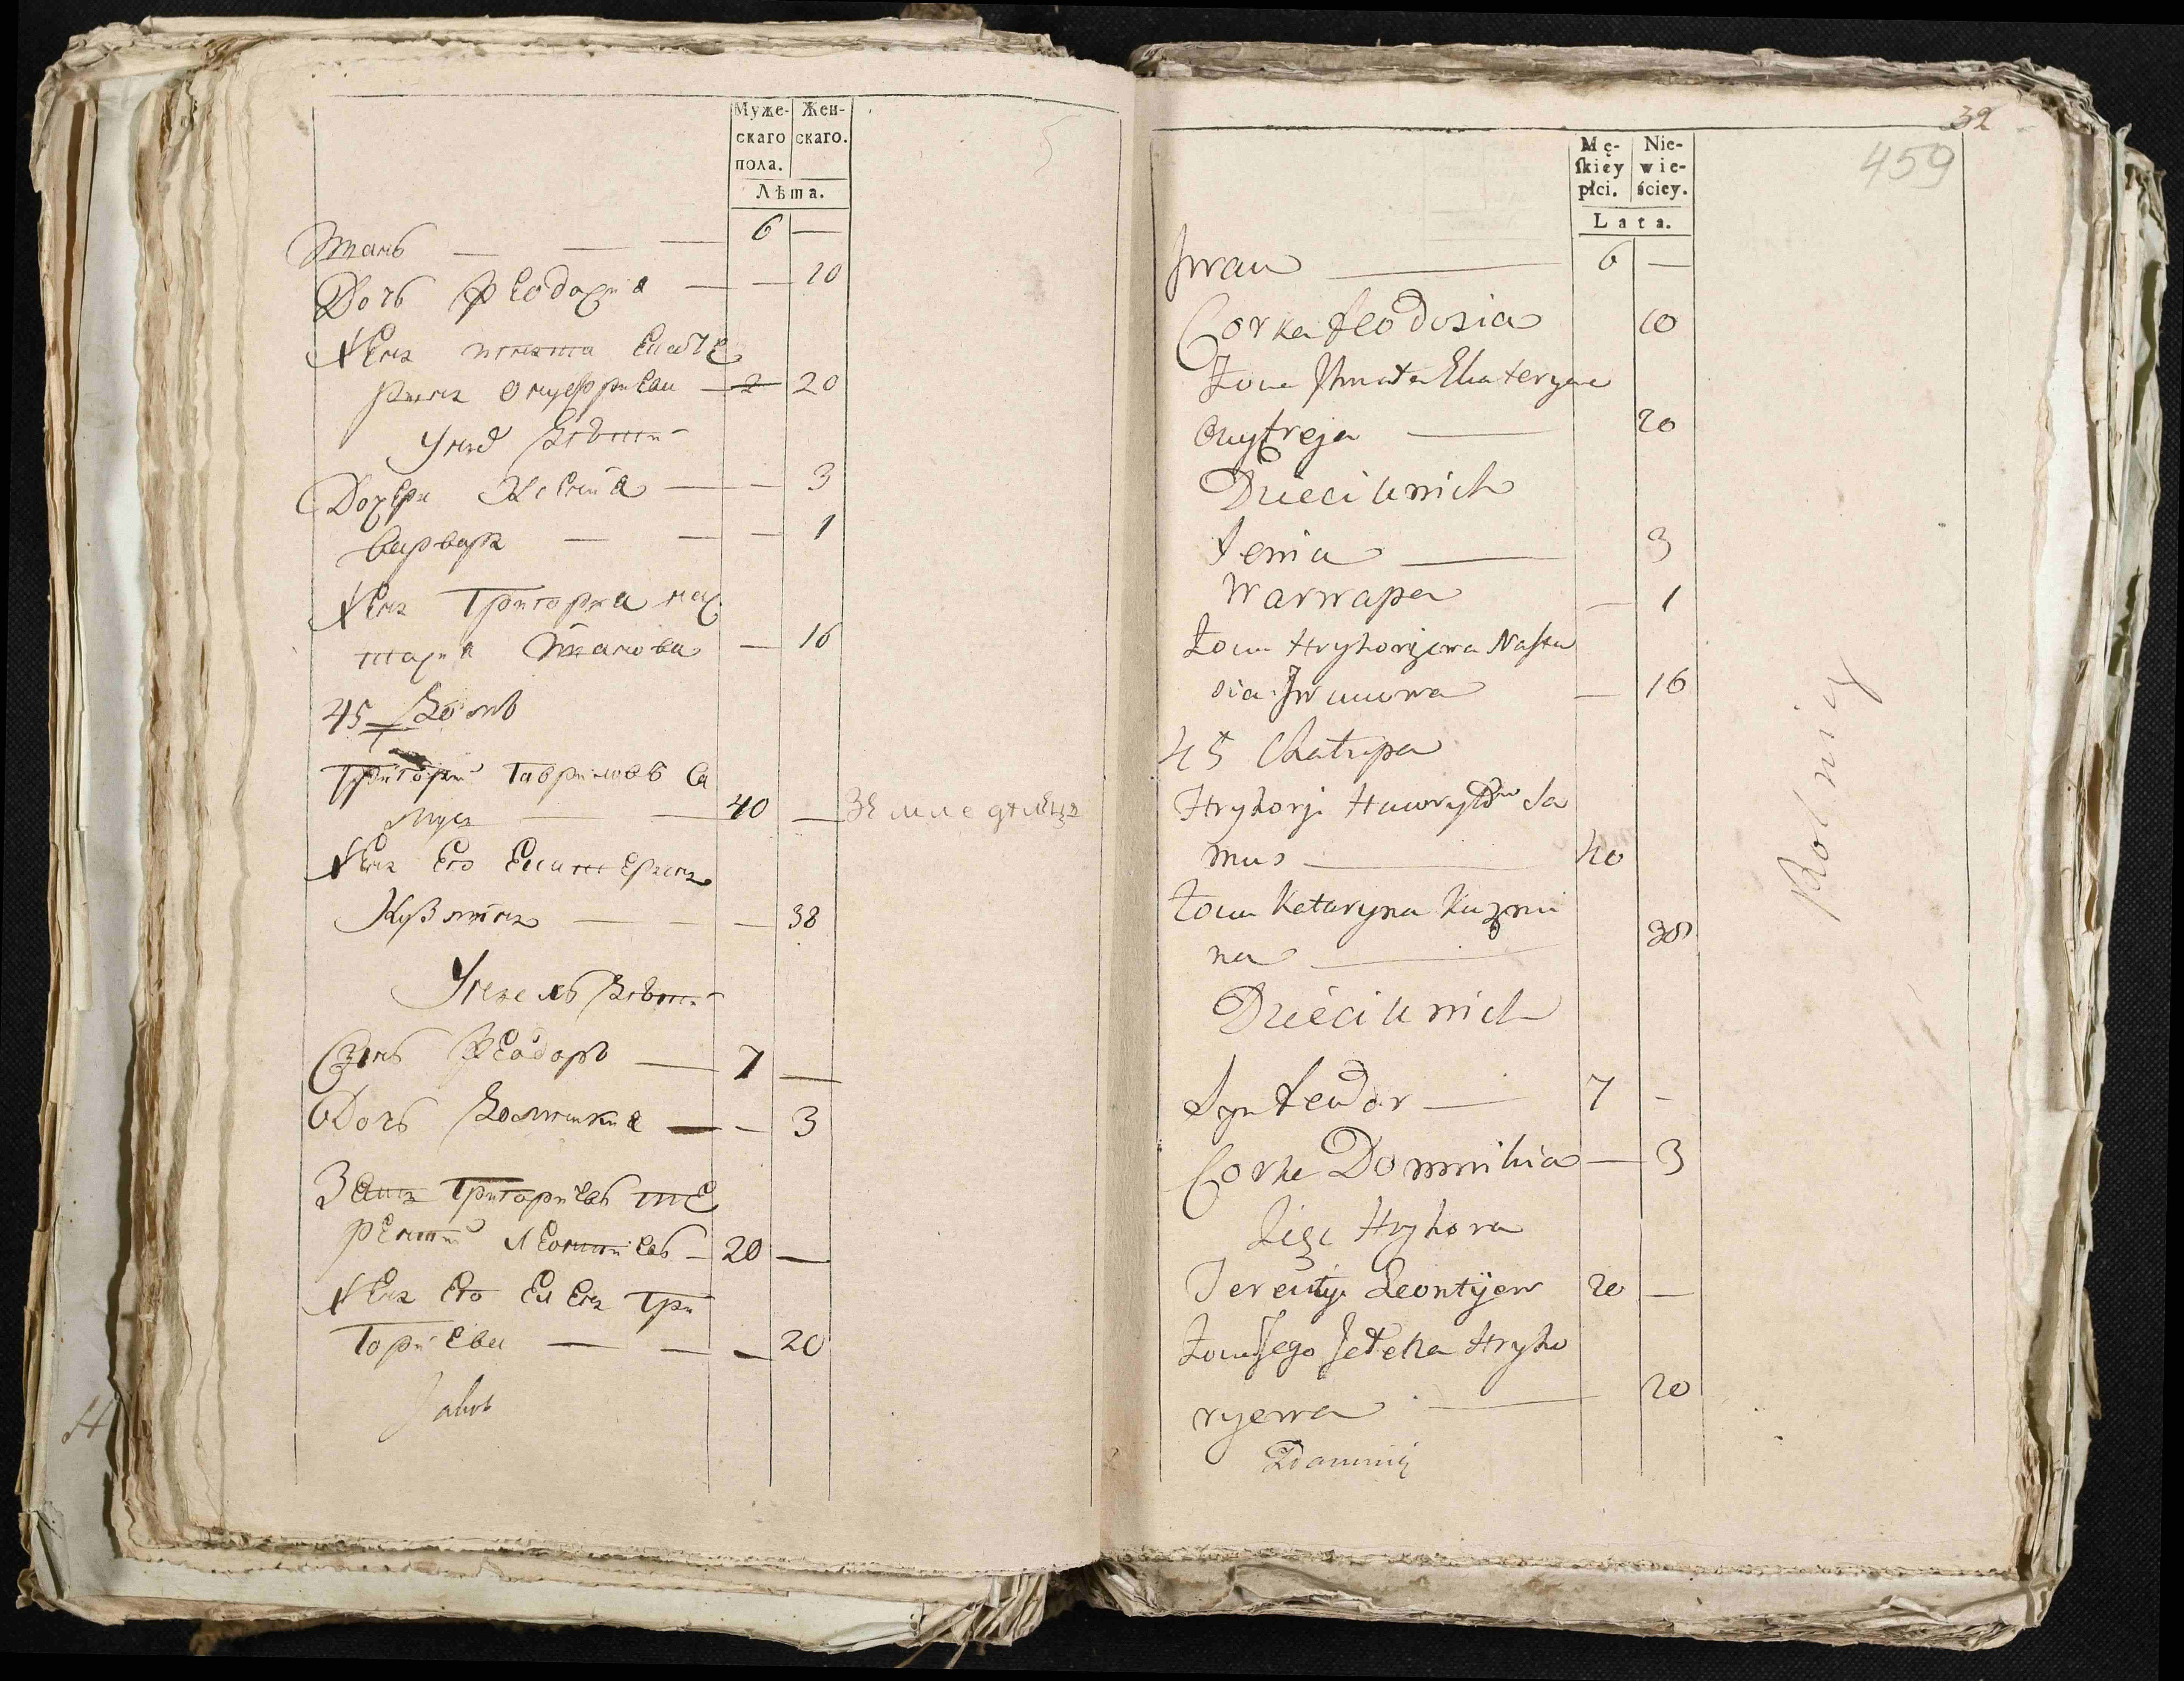 Муже-
скаго
пола.
Жен-
скаго.
Лѣта.
Иванъ — — — 6 —
Дочь Феодосия — — 10
Жена Игната Екате
рина Онуфриева — 20
У нихъ Дѣти
Дочери Ксения — — 3
Варвара — — — 1
Жена Григорка нас
тасия Иванова — 16
45 Домъ
Григорий Гавриловъ Са
мусь — — 40 — Земледѣлецъ
Жена Его Екатерина
Кузмина — — — 38
У нихъ Дѣти
Сынъ Феодоръ — 7 —
Дочь Домникия — — 3
Зять Григориевъ те
рентий Леонтиевъ — 20 —
Жена Его Елена Гри
гориева — — — 20
32
459
Mę-
ſkiey
płci.
Nie-
wie-
ściey.
Lata.
Iwan — 6 —
Corka Feodosia 10
Żona Ihnata Ekateryna
Onufreja — 20
Dzieci u nich
Xenia — 3
Warwara — 1
Żona Hryhorjewa Nasta
sia Iwanowa — 16
45 Chatupa
Hryhorji Hawryłow Sa
mus — 40
Żona Kataryna Kuzmi
na — 38
Dzieci u nich
Syn Feudor — 7 -
Corka Domnikia — 3
Zięć Hryhora
Terentji Leontijew 20 —
Żona Jego Jełena Hryho
ryewa — 20
Rolniy